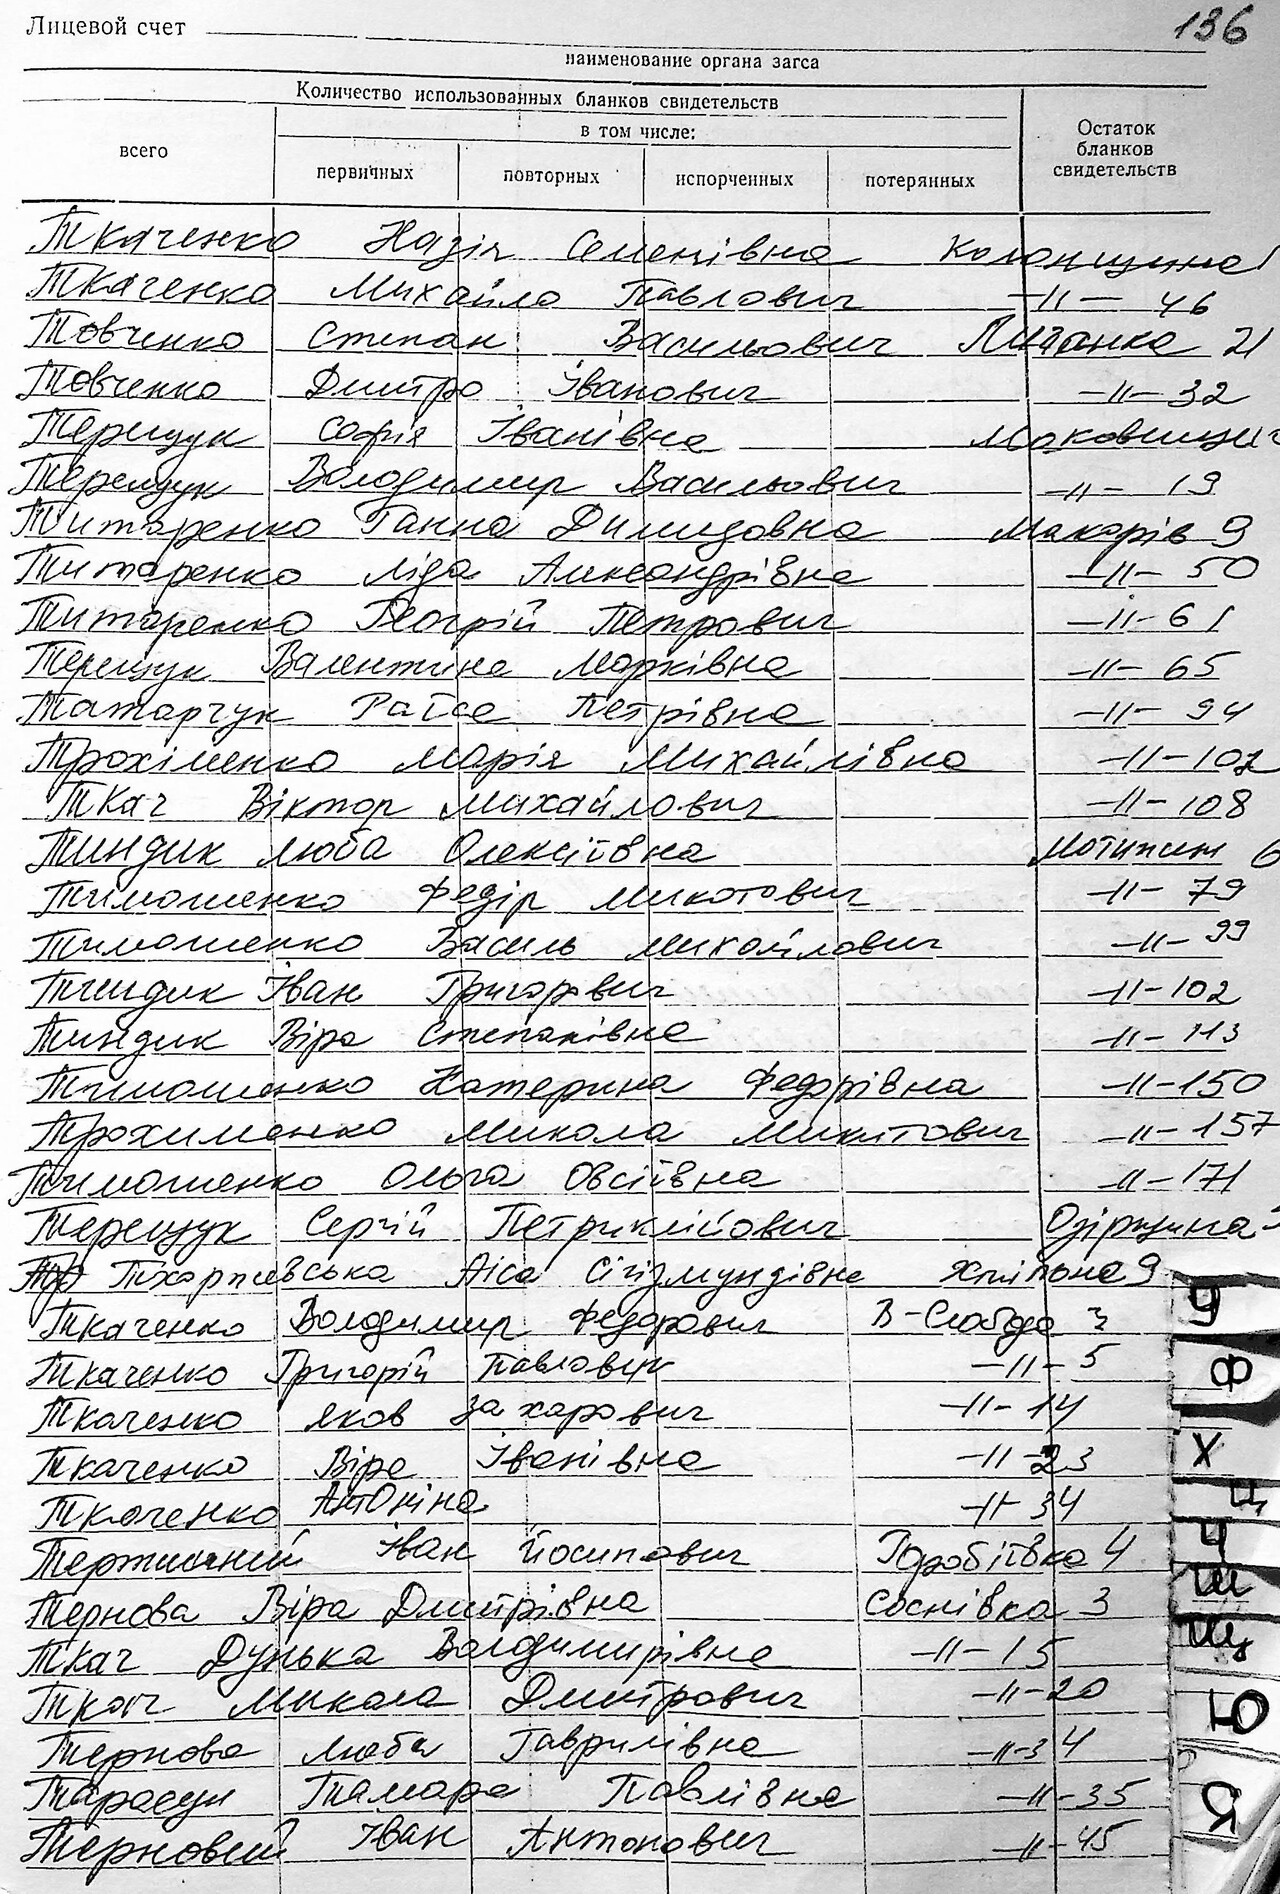 136
Лицевой счет
наименование органа загса
Количество использованных бланков свидетельств
в том числе:
Остаток бланков свидетельств
всего
первичных повторных испорченных потерянных
Ткаченко Надія Семенівна Колонщина
Ткаченко Михайло Павлович -//- 46
Товченко Степан Васильович 21
Товченко Дмитро Іванович -//- 32
Терещук Софія Іванівна
Терещук Володимир Васильович -//- 19
Титаренко Ганна Димидовна Макарів 9
Титаренко Ліда Александрівна -//- 50
Титаренко Георгій Петрович -//- 61
Терещук Валентина Марківна -//- 65
Татарчук Раїса Петрівна -//- 94
Трохіменко Марія Михайлівна -//- 102
Ткач Віктор Михайлович -//- 108
Тиндик Люба Олексіївна Мотижин 6
Тимошенко Федір Микитович -//- 79
Тимошенко Василь Михайлович -//- 99
Тиндик Іван Григорович -//- 102
Тиндик Віра Степанівна -//- 113
Тимошенко Катерина Федорівна -//- 150
Трохименко Микола Микитович -//- 157
Тимошенко Ольга Овсіївна -//- 171
Терещук Сергій Озірщина
Сігізмундівна 9
Ткаченко Володимир Федорович В-Слобода 3
Ткаченко Григорій Павлович -//- 5
Ткаченко Яков Захарович -//- 14
Ткаченко Віра Іванівна -//- 23
Ткаченко Антоніна -//- 34
Іван Йосипович 4
Тернова Віра Дмитрівна Соснівка 3
Ткач Дунька Володимирівна -//- 15
Ткач Микола Дмитрович -//- 20
Тернова Люба Гаврилівна -//- 34
Тарасун Тамара Павлівна -//- 35
Терновий Іван Антонович -//- 45
У
Ф
Х
Ц
Ч
Ш
Щ
Ю
Я